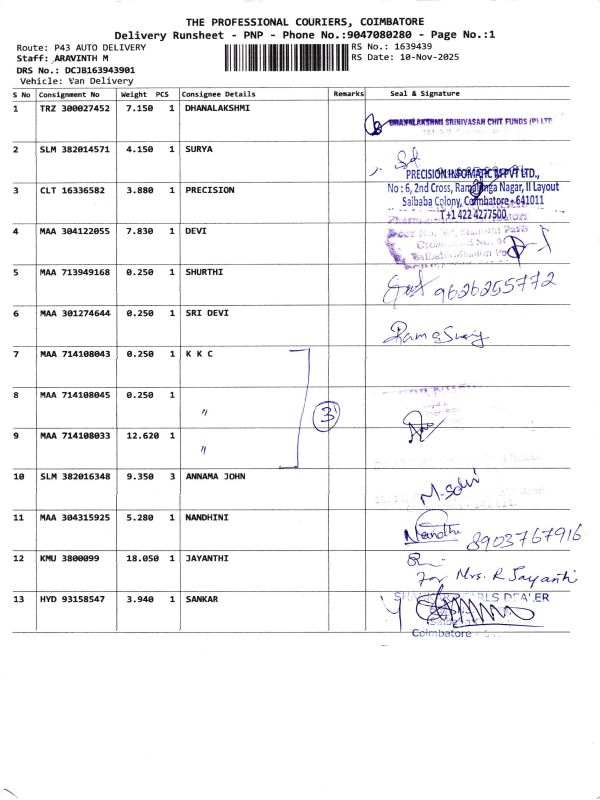 THE PROFESSIONAL COURIERS, COIMBATORE
Delivery Runsheet - PNP - Phone No.:9047080280 - Page No.:1
Route: P43 AUTO DELIVERY RS No.: 1639439
Staff: ARAVINTH M RS Date: 10-Nov-2025
DRS No.: DCJB163943901
Vehicle: Van Delivery
S No Consignment No Weight PCS Consignee Details Remarks Seal & Signature
1 TRZ 300027452 7.150 1 DHANALAKSHMI
DHANALAKSHMI SRINIVASAN CHIT FUNDS (P) LTD
2 SLM 382014571 4.150 1 SURYA
PRECISION INFOMATIC (M) PVT LTD.,
3 CLT 16336582 3.880 1 PRECISION
No : 6, 2nd Cross, Ramalinga Nagar, II Layout
Saibaba Colony, Coimbatore - 641011
T +1 422 4277500
4 MAA 304122055 7.830 1 DEVI
5 MAA 713949168 0.250 1 SHURTHI
9626255772
6 MAA 301274644 0.250 1 SRI DEVI
7 MAA 714108043 0.250 1 K K C
8 MAA 714108045 0.250 1 〃
3
9 MAA 714108033 12.620 1 〃
10 SLM 382016348 9.350 3 ANNAMA JOHN
M. Selvi
11 MAA 304315925 5.280 1 NANDHINI
Nandhi 8903767916
12 KMU 3800099 18.050 1 JAYANTHI
For Mrs. R Jayanthi
13 HYD 93158547 3.940 1 SANKAR
Coimbatore